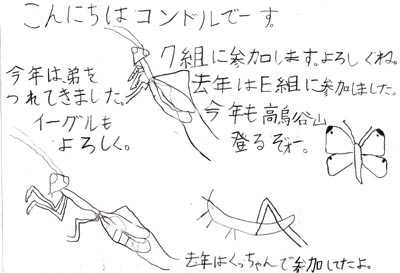 こんにちはコンドルでーす。
ク組に参加します。よろしくね。
去年はE組に参加しました。
今年も高烏谷山
登るぞォー。
今年は弟を
つれてきました。
イーグルも
よろしく。
去年はくっちゃんで参加してたよ。